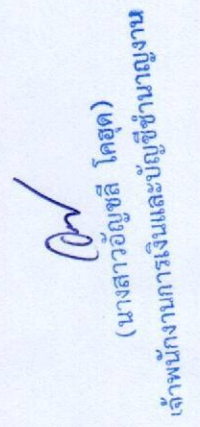 (นางสาวอัญชลี โคฮุด)
เจ้าพนักงานการเงินและบัญชีชำนาญงาน